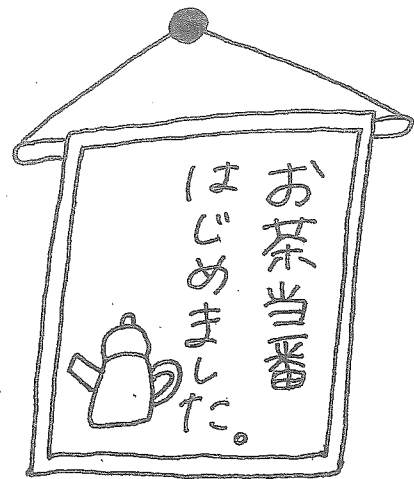 お茶当番
はじめました。